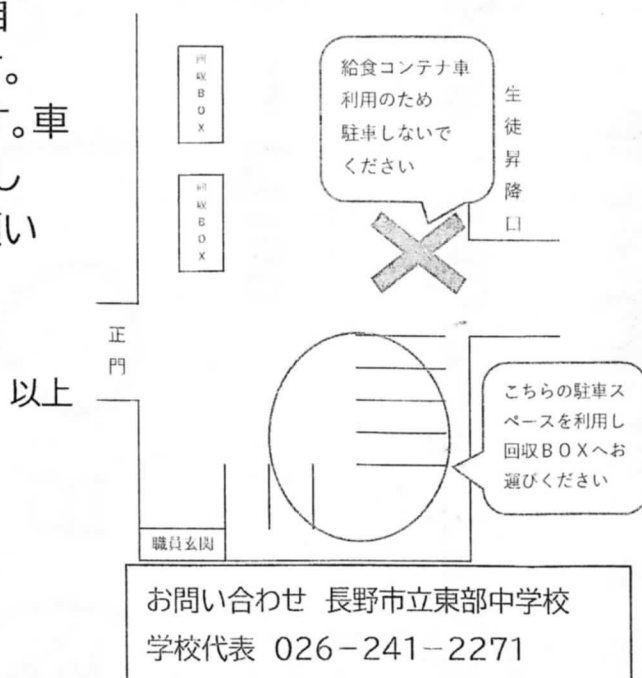 す。車
し
願い
以上
回収BOX
回収BOX
給食コンテナ車
利用のため
駐車しないで
ください
生徒昇降口
正門
こちらの駐車ス
ペースを利用し
回収BOXへお
運びください
職員玄関
お問い合わせ 長野市立東部中学校
学校代表 026-241-2271